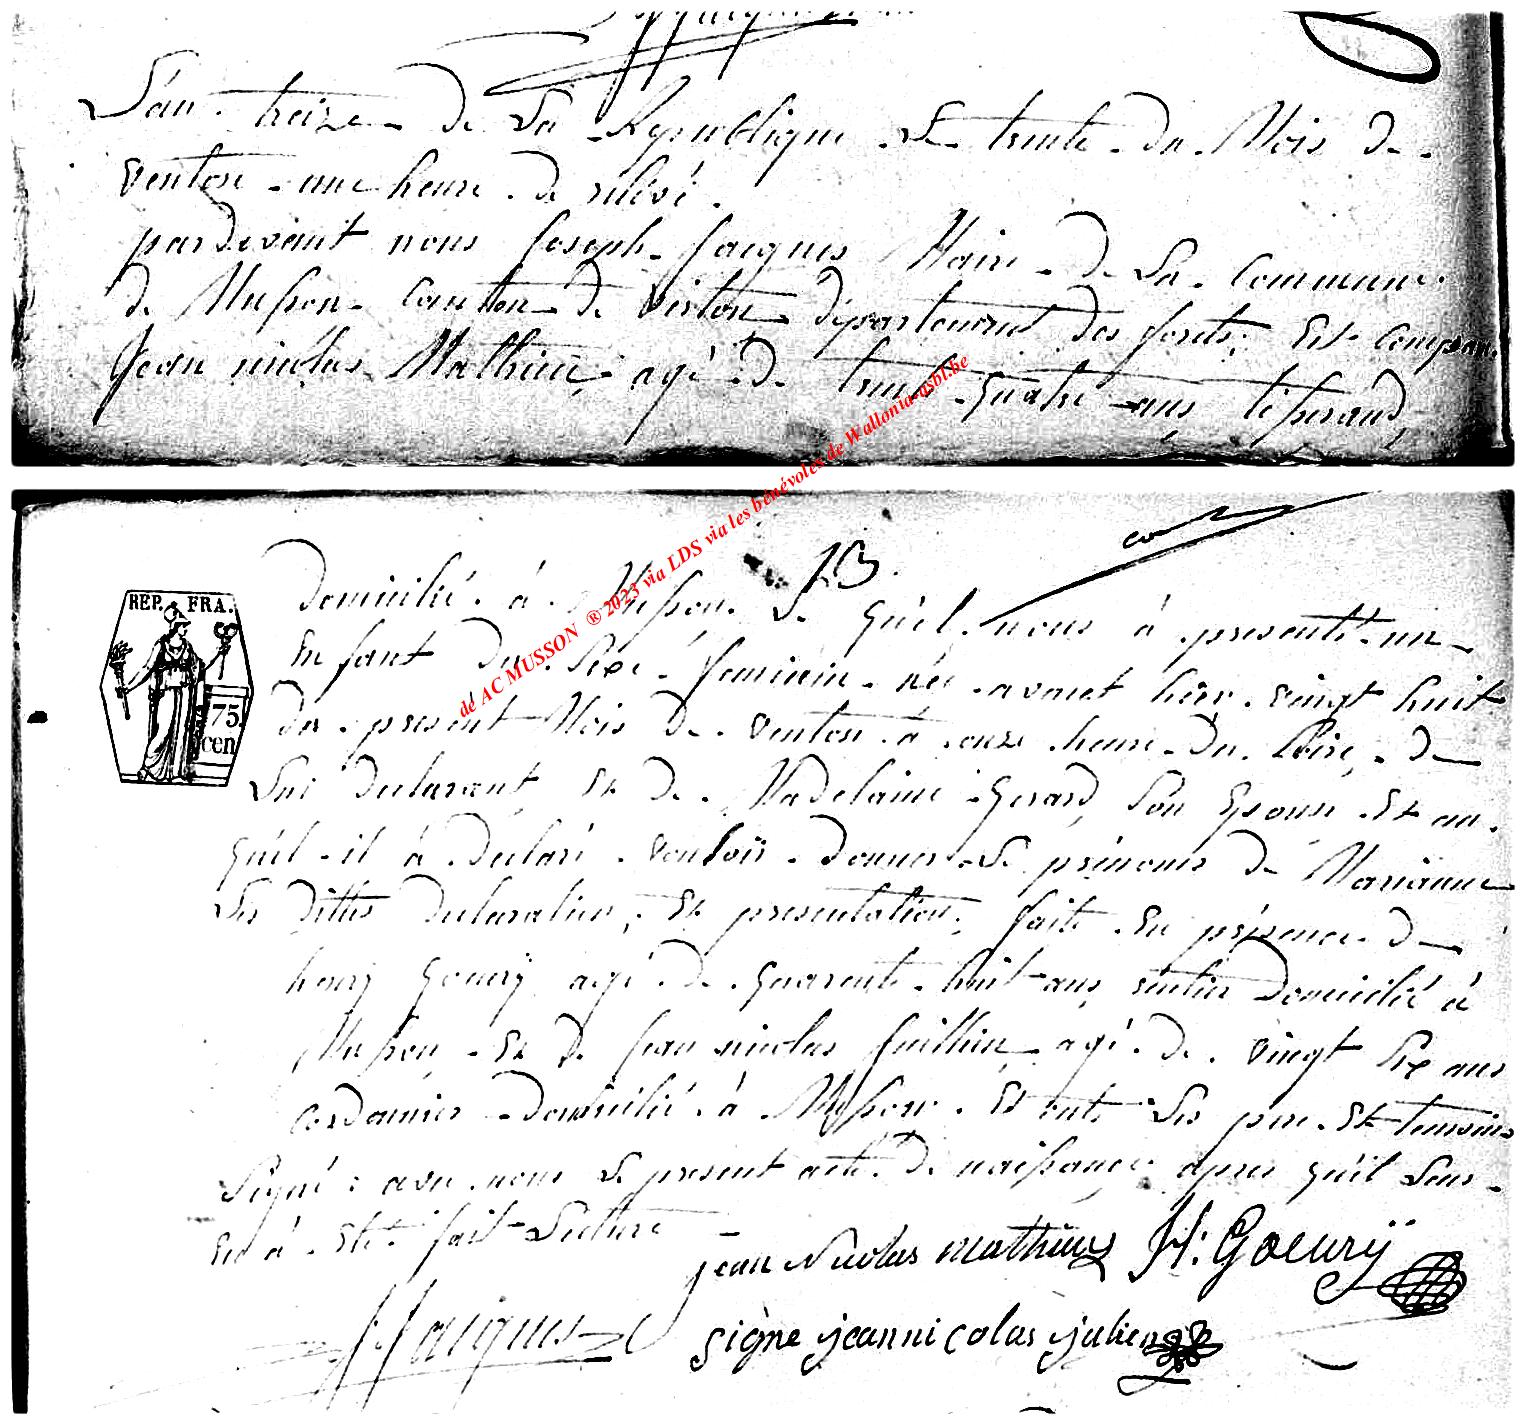 L'an treize de La Republique Le trente du Mois de
ventose une heure de relevé
pardevant nous Joseph Jacques Maire de La Commune
de Musson Canton de virton département des forets, Est Comparu
Jean nicolas Mathieu agé de trente quatre ans tisserand,
13
Domicilié à Musson Le quel nous à presenté un
Enfant du sexe feminin née avant hier vingt huit
du present Mois de Ventose à onze heure du soire, de
Lui declarant, Et de Madelaine Gerard, son Epouse Et au
quel il à declaré vouloir donner Le prénoms de Marianne
Les dittes declaration, Et presentation, faite En présence de
henry Goeury agé de quarente huit ans, rentier Domicilié à
Musson Et de Jean nicolas Guillien agé de vingt six ans
Cordonnier domicilié à Musson Et ont Les pere Et temoins
signé avec nous Le present acte de naissance apres quil Leur
En à Eté fait Lecture
jean Nicolas mathieus H: Goeurÿ
J Jacques
signe jeannicolas julien
REP. FRA.
75
cen
de AC MUSSON ® 2023 via LDS via les bénévoles de Wallonia-asbl.be